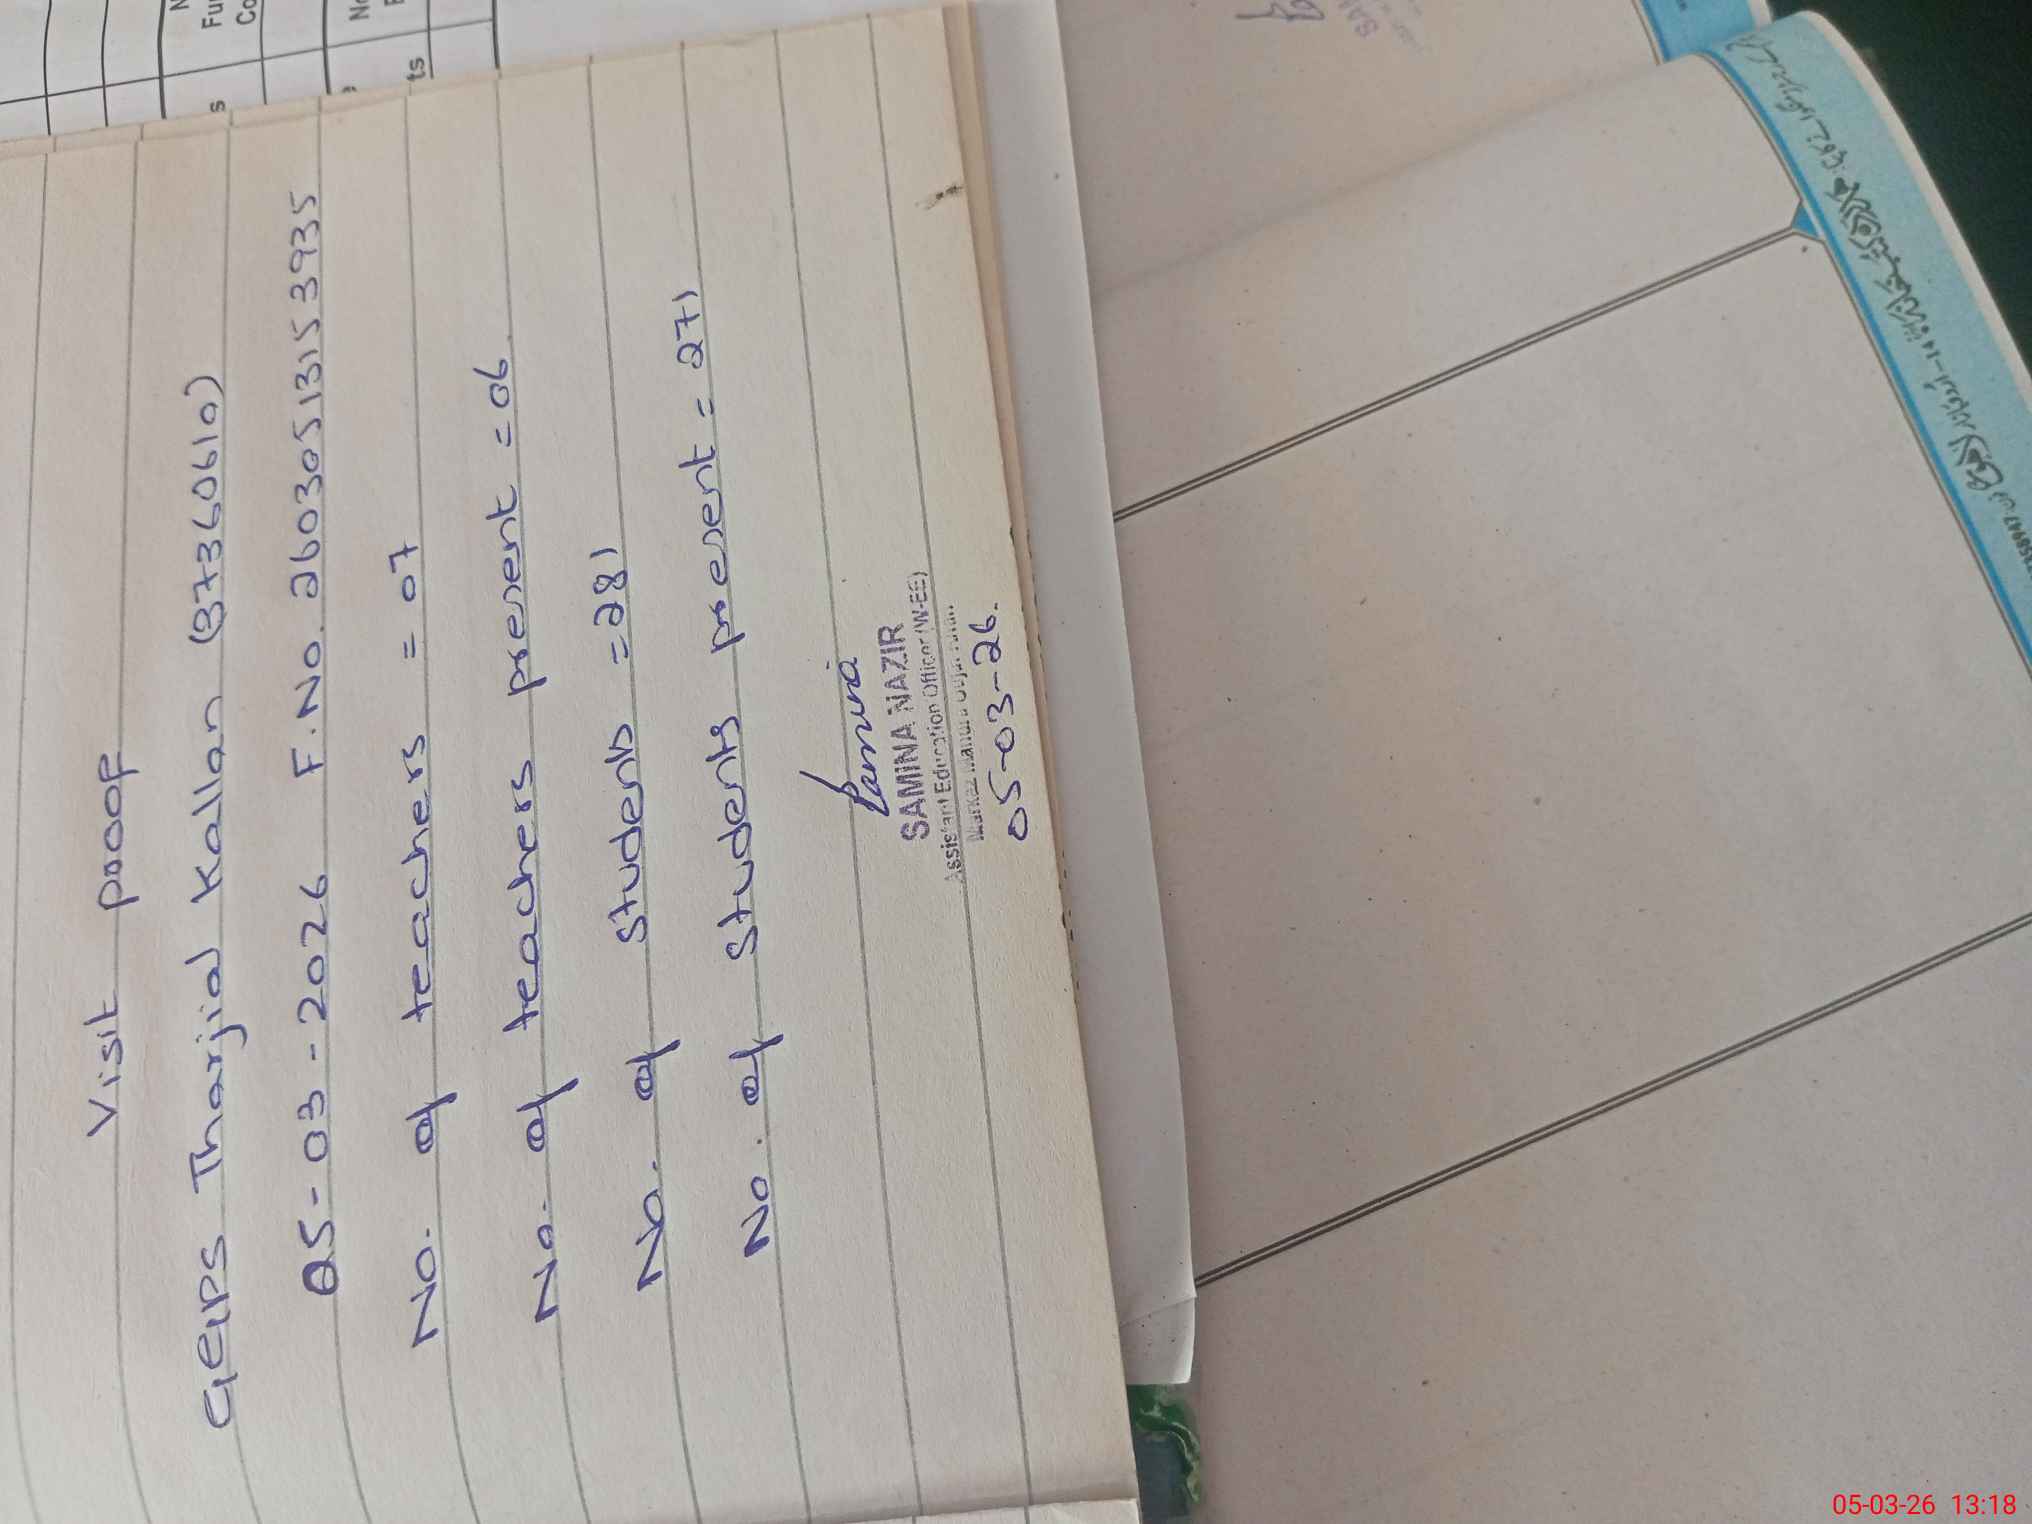 Visit proof
GEIPS Tharjial Kallan (37360610)
05-03-2026 F.No. 2603051315 3935
No. of teachers = 07
No. of teachers present = 06
No. of Students = 281
No. of Students present = 271
Samina
SAMINA NAZIR
Assistant Education Officer (W-EE)
Markaz
05-03-26.
05-03-26 13:18